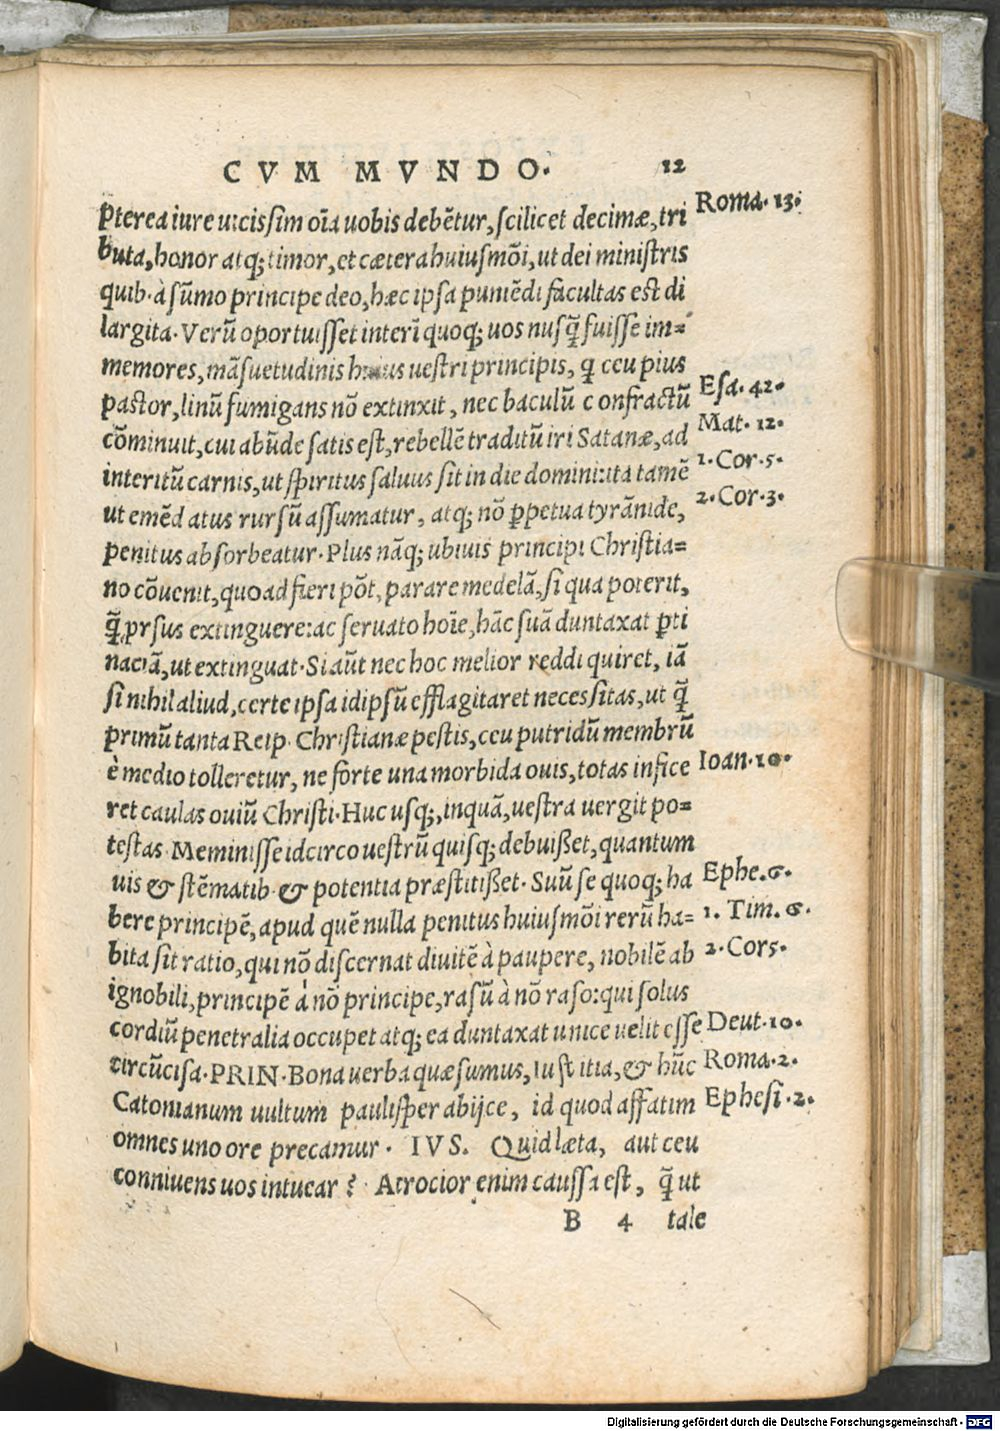 CVM MVNDO. 12
Ptereà iure uicissim oīa uobis debētur, scilicet decimæ, tri
Roma. 13.
buta, honor atq; timor, et cætera huiusmōi, ut dei ministris
quib. à sūmo principe deo, hæc ipsa puniēdi facultas est di
largita. Verū oportuisset interī quoq; uos nusq̃ fuisse im=
memores, māsuetudinis huius uestri principis, q̃ ceu pius
pastor, linū fumigans nō extinxit, nec baculū confractū
Esa. 42.
cōminuit, cui abūde satis est, rebellē traditū iri Satanæ, ad
Mat. 12.
interitū carnis, ut spiritus saluus sit in die domini:ita tamē
1. Cor. 5.
ut emēdatus rursū assumatur, atq; nō ꝑpetua tyrānide,
2. Cor. 3.
penitus absorbeatur. Plus nāq; ubiuis principi Christia=
no cōuenit, quoad fieri pōt, parare medelā, si qua poterit,
q̃ prsus extinguere: ac seruato hoīe, hāc suā duntaxat ꝑti
naciā, ut extinguat. Si aūt nec hoc melior reddi quiret, iā
si nihil aliud, certe ipsa idipsū efflagitaret necessitas, ut q̃
primū tanta Reip. Christianæ pestis, ceu putridū membrū
è medio tolleretur, ne forte una morbida ouis, totas infice
Ioan. 10.
ret caulas ouiū Christi. Huc usq;, inquā, uestra uergit po=
testas. Meminisse idcirco uestrū quisq; debuißet, quantum
uis & stēmatib. & potentia præstitißet. Suū se quoq; ha
Ephe. 6.
bere principē, apud quē nulla penitus huiusmōi rerū ha=
1. Tim. 6.
bita sit ratio, qui nō discernat diuitē à paupere, nobilē ab
2. Cor 5.
ignobili, principē à nō principe, rasū à nō raso: qui solus
cordiū penetralia occupet atq; ea duntaxat unice uelit esse
Deut. 10.
circūcisa. PRIN. Bona uerba quæsumus, Iustitia, & hūc
Roma. 2.
Catonianum uultum paulisper abijce, id quod affatim
Ephesi. 2.
omnes uno ore precamur. IVS. Quid læta, aut ceu
conniuens uos intuear? Atrocior enim caussa est, q̃ ut
B 4 tale
Digitalisierung gefördert durch die Deutsche Forschungsgemeinschaft - DFG